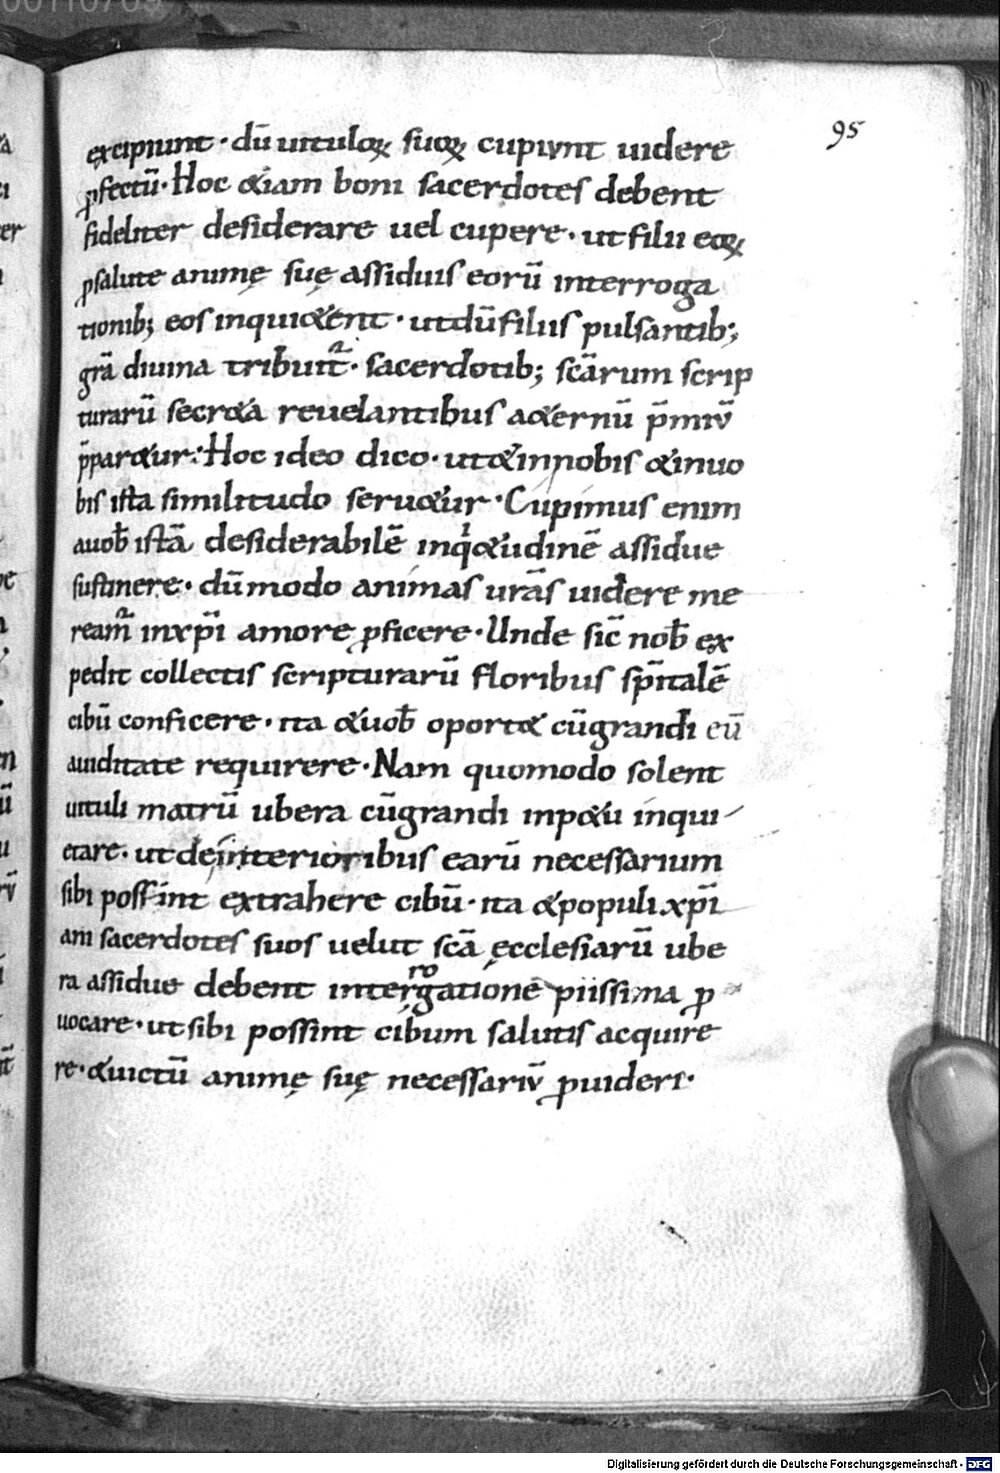 95
excipiunt · dū uituloꝝ suoꝝ cupiunt uidere
ꝓfectū · Hoc &iam boni sacerdotes debent
fideliter desiderare uel cupere · ut filii eoꝝ
ꝓ salute animę suę assiduis eorū interroga
tionib; eos inqui&ent · ut dū filiis pulsantib;
grā diuina tribuit᷑ · sacerdotib; scārum scrip
turarū secr&a reuelantibus a&ernū p̄miū
p̄par&ur · Hoc ideo dico · ut & in nobis & in uo
bis ista similitudo seru&ur · Cupimus enim
a uob̄ istā desiderabilē inq̇&udinē assidue
sustinere · dūmodo animas urās uidere me
ream᷑ in xp̄i amore ꝓficere · Unde sic̄ nob̄ ex
pedit collectis scripturarū floribus sp̄italē
cibū conficere · ita & uob̄ oport& cū grandi eū
auiditate requirere · Nam quomodo solent
uituli matrū ubera cū grandi inp&u inqui
etare · ut de interioribus earū necessarium
sibi possint extrahere cibū · ita & populi xp̄i
ani sacerdotes suos uelut scā ęcclesiarū ube
ra assidue debent interrogatione piissima ꝓ
uocare · ut sibi possint cibum salutis acquire
re · & uictū animę suę necessariū ꝓuideri ·
00110709
Digitalisierung gefördert durch die Deutsche Forschungsgemeinschaft - DFG